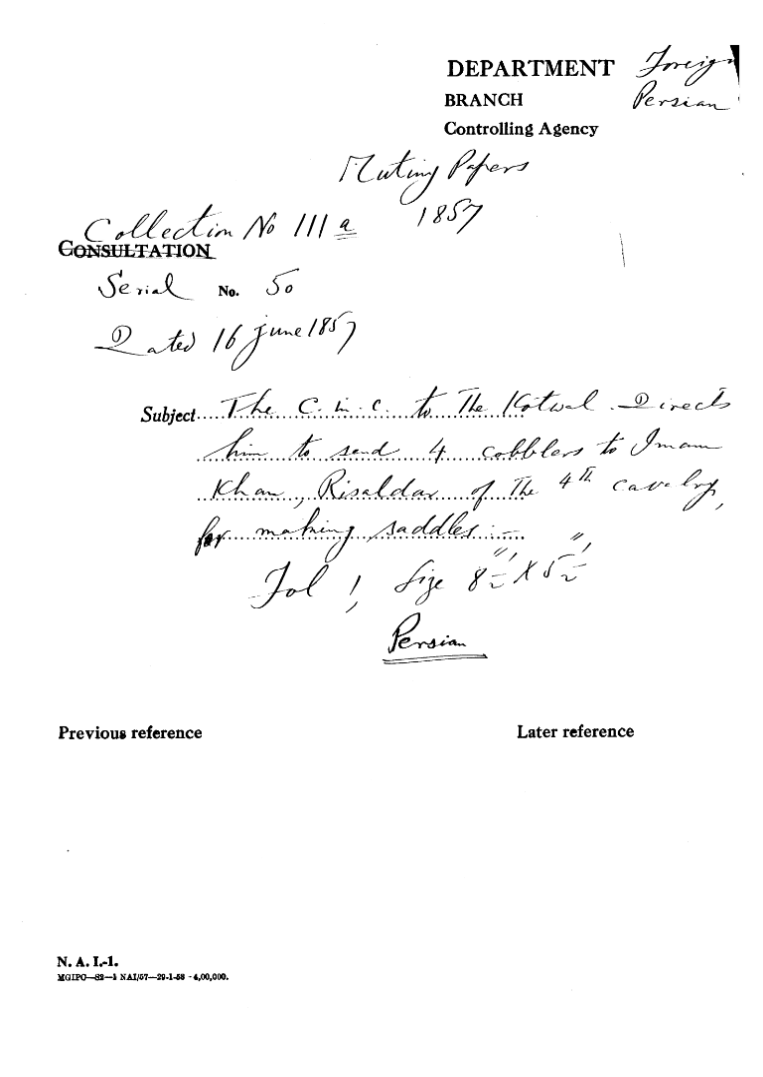 DEPARTMENT Foreign
BRANCH Persian
Controlling Agency
Mutiny Papers
1857
Collection No 111 a
CONSULTATION
Serial No. 50
Dated 16 June 1857
Subject The C. in. C. to The Kotwal. Directs
him to send 4 cobblers to Imam
Khan, Risaldar of The 4th cavalry,
for making saddles:—
Fol 1, Size 8" X 5"
Persian
Previous reference Later reference
N. A. I.-1.
MGIPC—S2—1 NAI/57—29-1-58 -4,00,000.